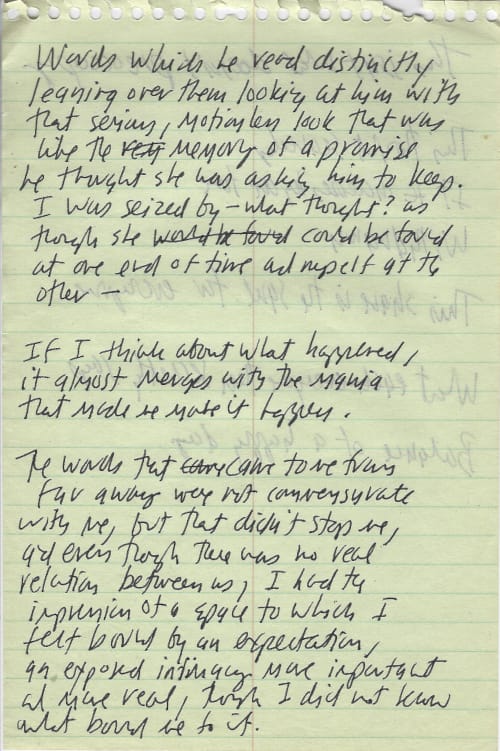 Words which he read distinctly
leaning over them looking at him with
that serious, motionless look that was
like the very memory of a promise
he thought she was asking him to keep.
I was seized by – what thought? as
though she would be found could be found
at one end of time and myself at the
other –
If I think about what happened,
it almost merges with the mania
that made me make it happen.
The words that came came to me from
far away were not commensurate
with me, but that didn't stop me,
and even though there was no real
relation between us, I had the
impression of a space to which I
felt bound by an expectation,
an exposed intimacy more important
and more real, though I did not know
what bound me to it.